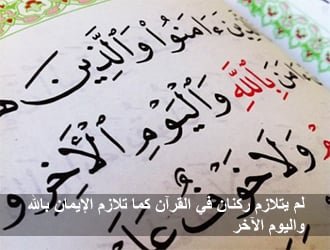 ءَامَنُوا۟ وَٱلَّذِينَ
بِٱللَّهِ وَٱلْيَوْمِ ٱلْأَخِرِ و
وَلَا خَوْفٌ
لم يتلازم ركنان في القرآن كما تلازم الإيمان بالله
واليوم الآخر